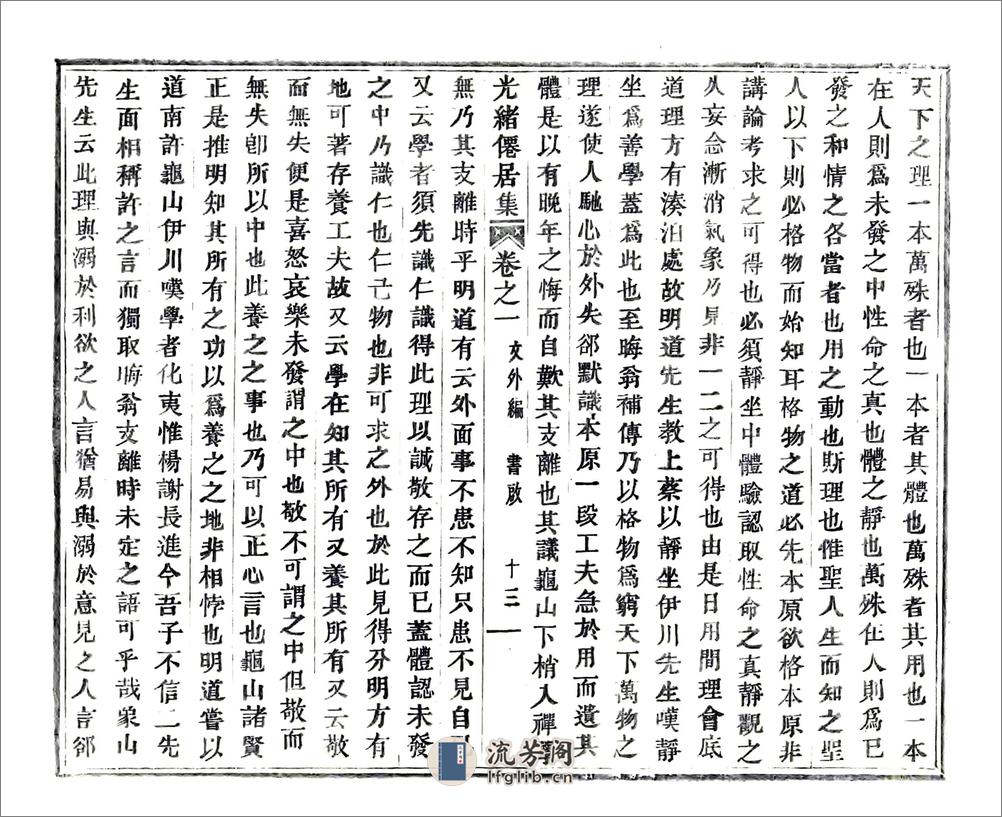 天下之理一本萬殊者也一本者其體也萬殊者其用也一本
在人則爲未發之中性命之眞也體之靜也萬殊在人則爲已
發之和情之各當者也用之動也斯理也惟聖人生而知之聖
人以下則必格物而始知耳格物之道必先本原欲格本原非
講論考求之可得也必須靜坐中體驗認取性命之眞靜觀之
久妄念漸消氣象乃見非一二之可得也由是日用間理會底
道理方有湊泊處故明道先生教上蔡以靜坐伊川先生嘆靜
坐爲善學蓋爲此也至晦翁補傳乃以格物爲窮天下萬物之
理遂使人馳心於外失郤默識本原一段工夫急於用而遺其
體是以有晚年之悔而自歎其支離也其議龜山下梢入禪學
光緒僊居集 卷之一 文外編 書啟 十三
無乃其支離時乎明道有云外面事不患不知只患不見自
又云學者須先識仁識得此理以誠敬存之而已蓋體認未發
之中乃識仁也仁己物也非可求之外也於此見得分明方有
地可著存養工夫故又云學在知其所有又養其所有又云敬
而無失便是喜怒哀樂未發謂之中也敬不可謂之中但敬而
無失卽所以中也此養之之事也乃可以正心言也龜山諸賢
正是推明知其所有之功以爲養之之地非相悖也明道嘗以
道南許龜山伊川嘆學者化夷惟楊謝長進今吾子不信二先
生面相稱許之言而獨取晦翁支離時未定之語可乎哉象山
先生云此理與溺於利欲之人言猶易與溺於意見之人言郤
流芳阁
lfglib.cn